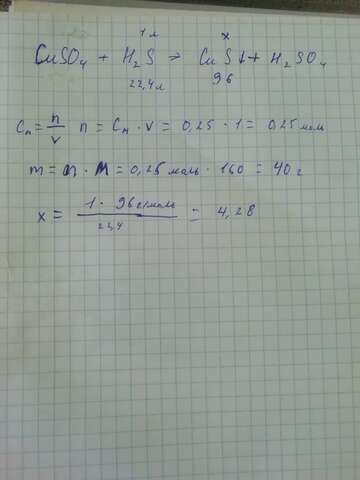 1л x
CuSO₄ + H₂S → CuS↓ + H₂SO₄
22,4л 96
Cₙ = n/v n = Cₙ · v = 0,25 · 1 = 0,25 моль
m = n · M = 0,25 моль · 160 = 40 г
x = 1 · 96 г/моль / 22,4 = 4,28